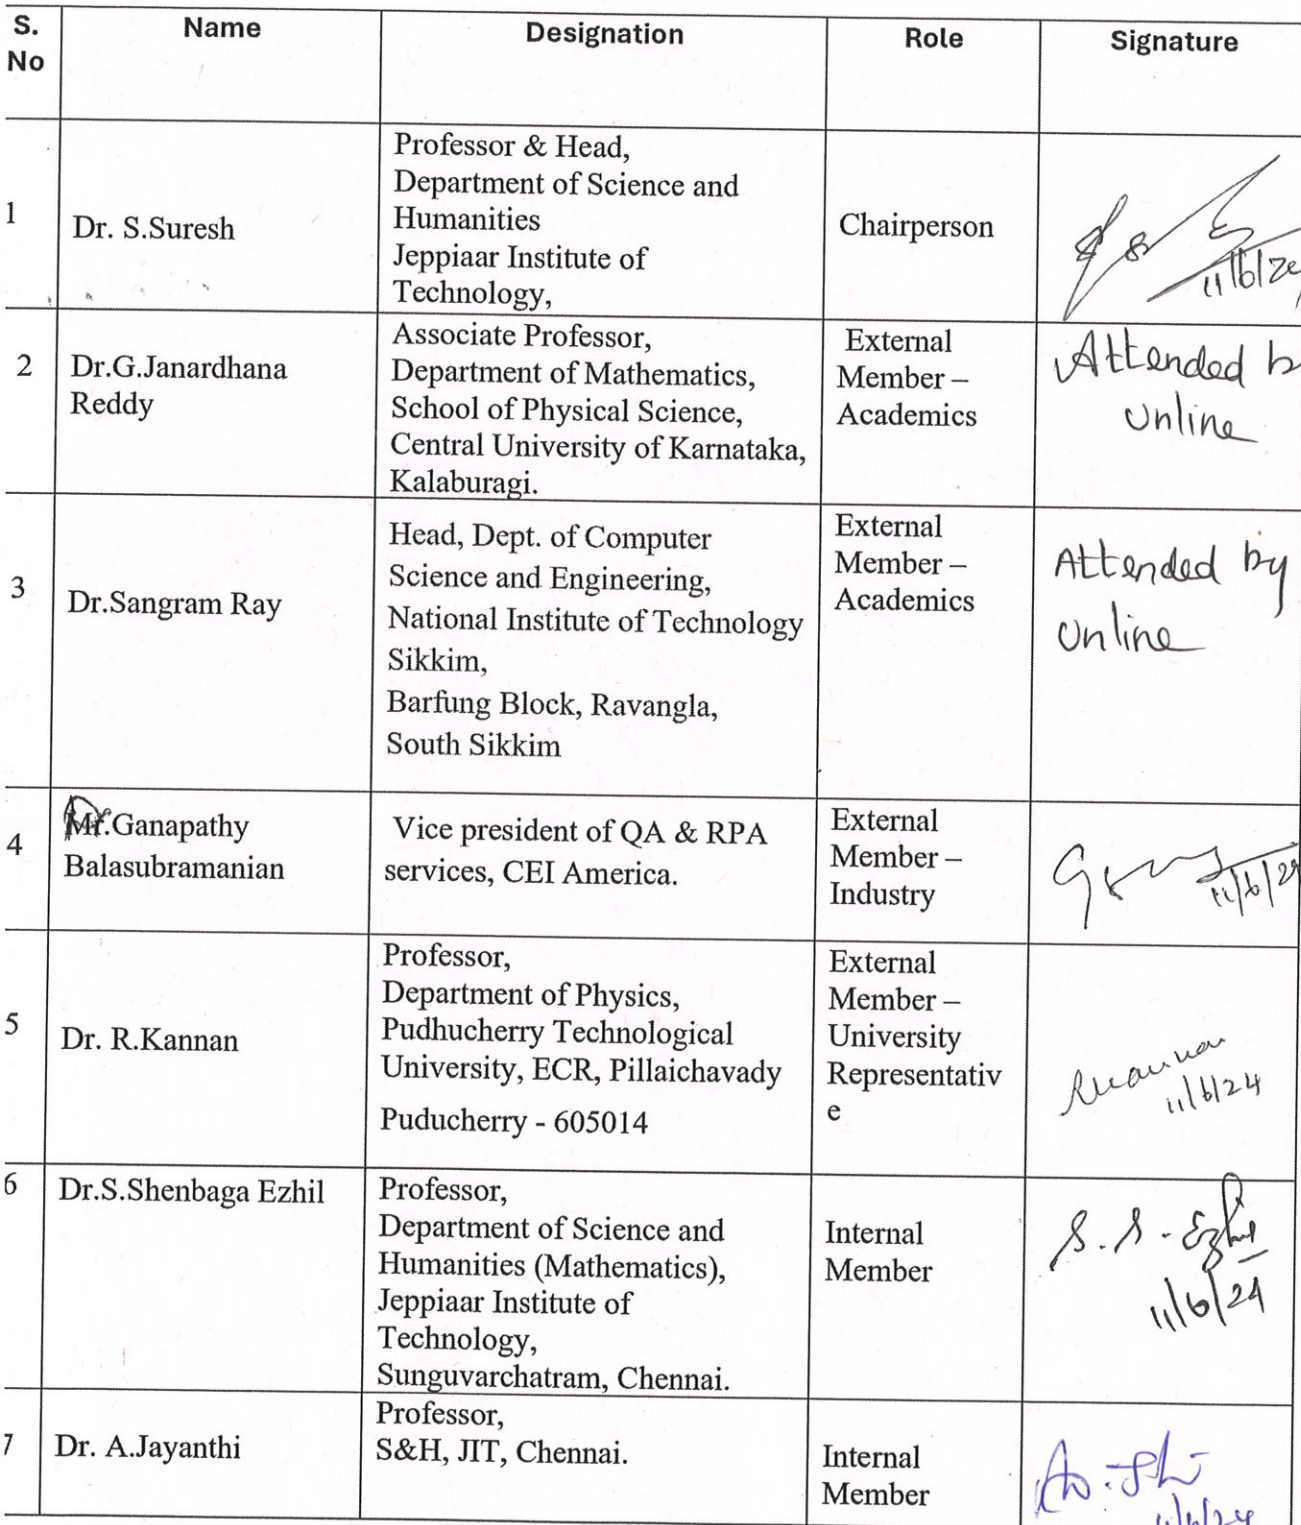 S. No
Name
Designation
Role
Signature
1
Dr. S.Suresh
Professor & Head,
Department of Science and
Humanities
Jeppiaar Institute of
Technology,
Chairperson
11/6/24
2
Dr.G.Janardhana
Reddy
Associate Professor,
Department of Mathematics,
School of Physical Science,
Central University of Karnataka,
Kalaburagi.
External
Member –
Academics
Attended b
Online
3
Dr.Sangram Ray
Head, Dept. of Computer
Science and Engineering,
National Institute of Technology
Sikkim,
Barfung Block, Ravangla,
South Sikkim
External
Member –
Academics
Attended by
Online
4
Mr.Ganapathy
Balasubramanian
Vice president of QA & RPA
services, CEI America.
External
Member –
Industry
11/6/24
5
Dr. R.Kannan
Professor,
Department of Physics,
Pudhucherry Technological
University, ECR, Pillaichavady
Puducherry - 605014
External
Member –
University
Representativ
e
11/6/24
6
Dr.S.Shenbaga Ezhil
Professor,
Department of Science and
Humanities (Mathematics),
Jeppiaar Institute of
Technology,
Sunguvarchatram, Chennai.
Internal
Member
S. S. Ezhil
11/6/24
7
Dr. A.Jayanthi
Professor,
S&H, JIT, Chennai.
Internal
Member